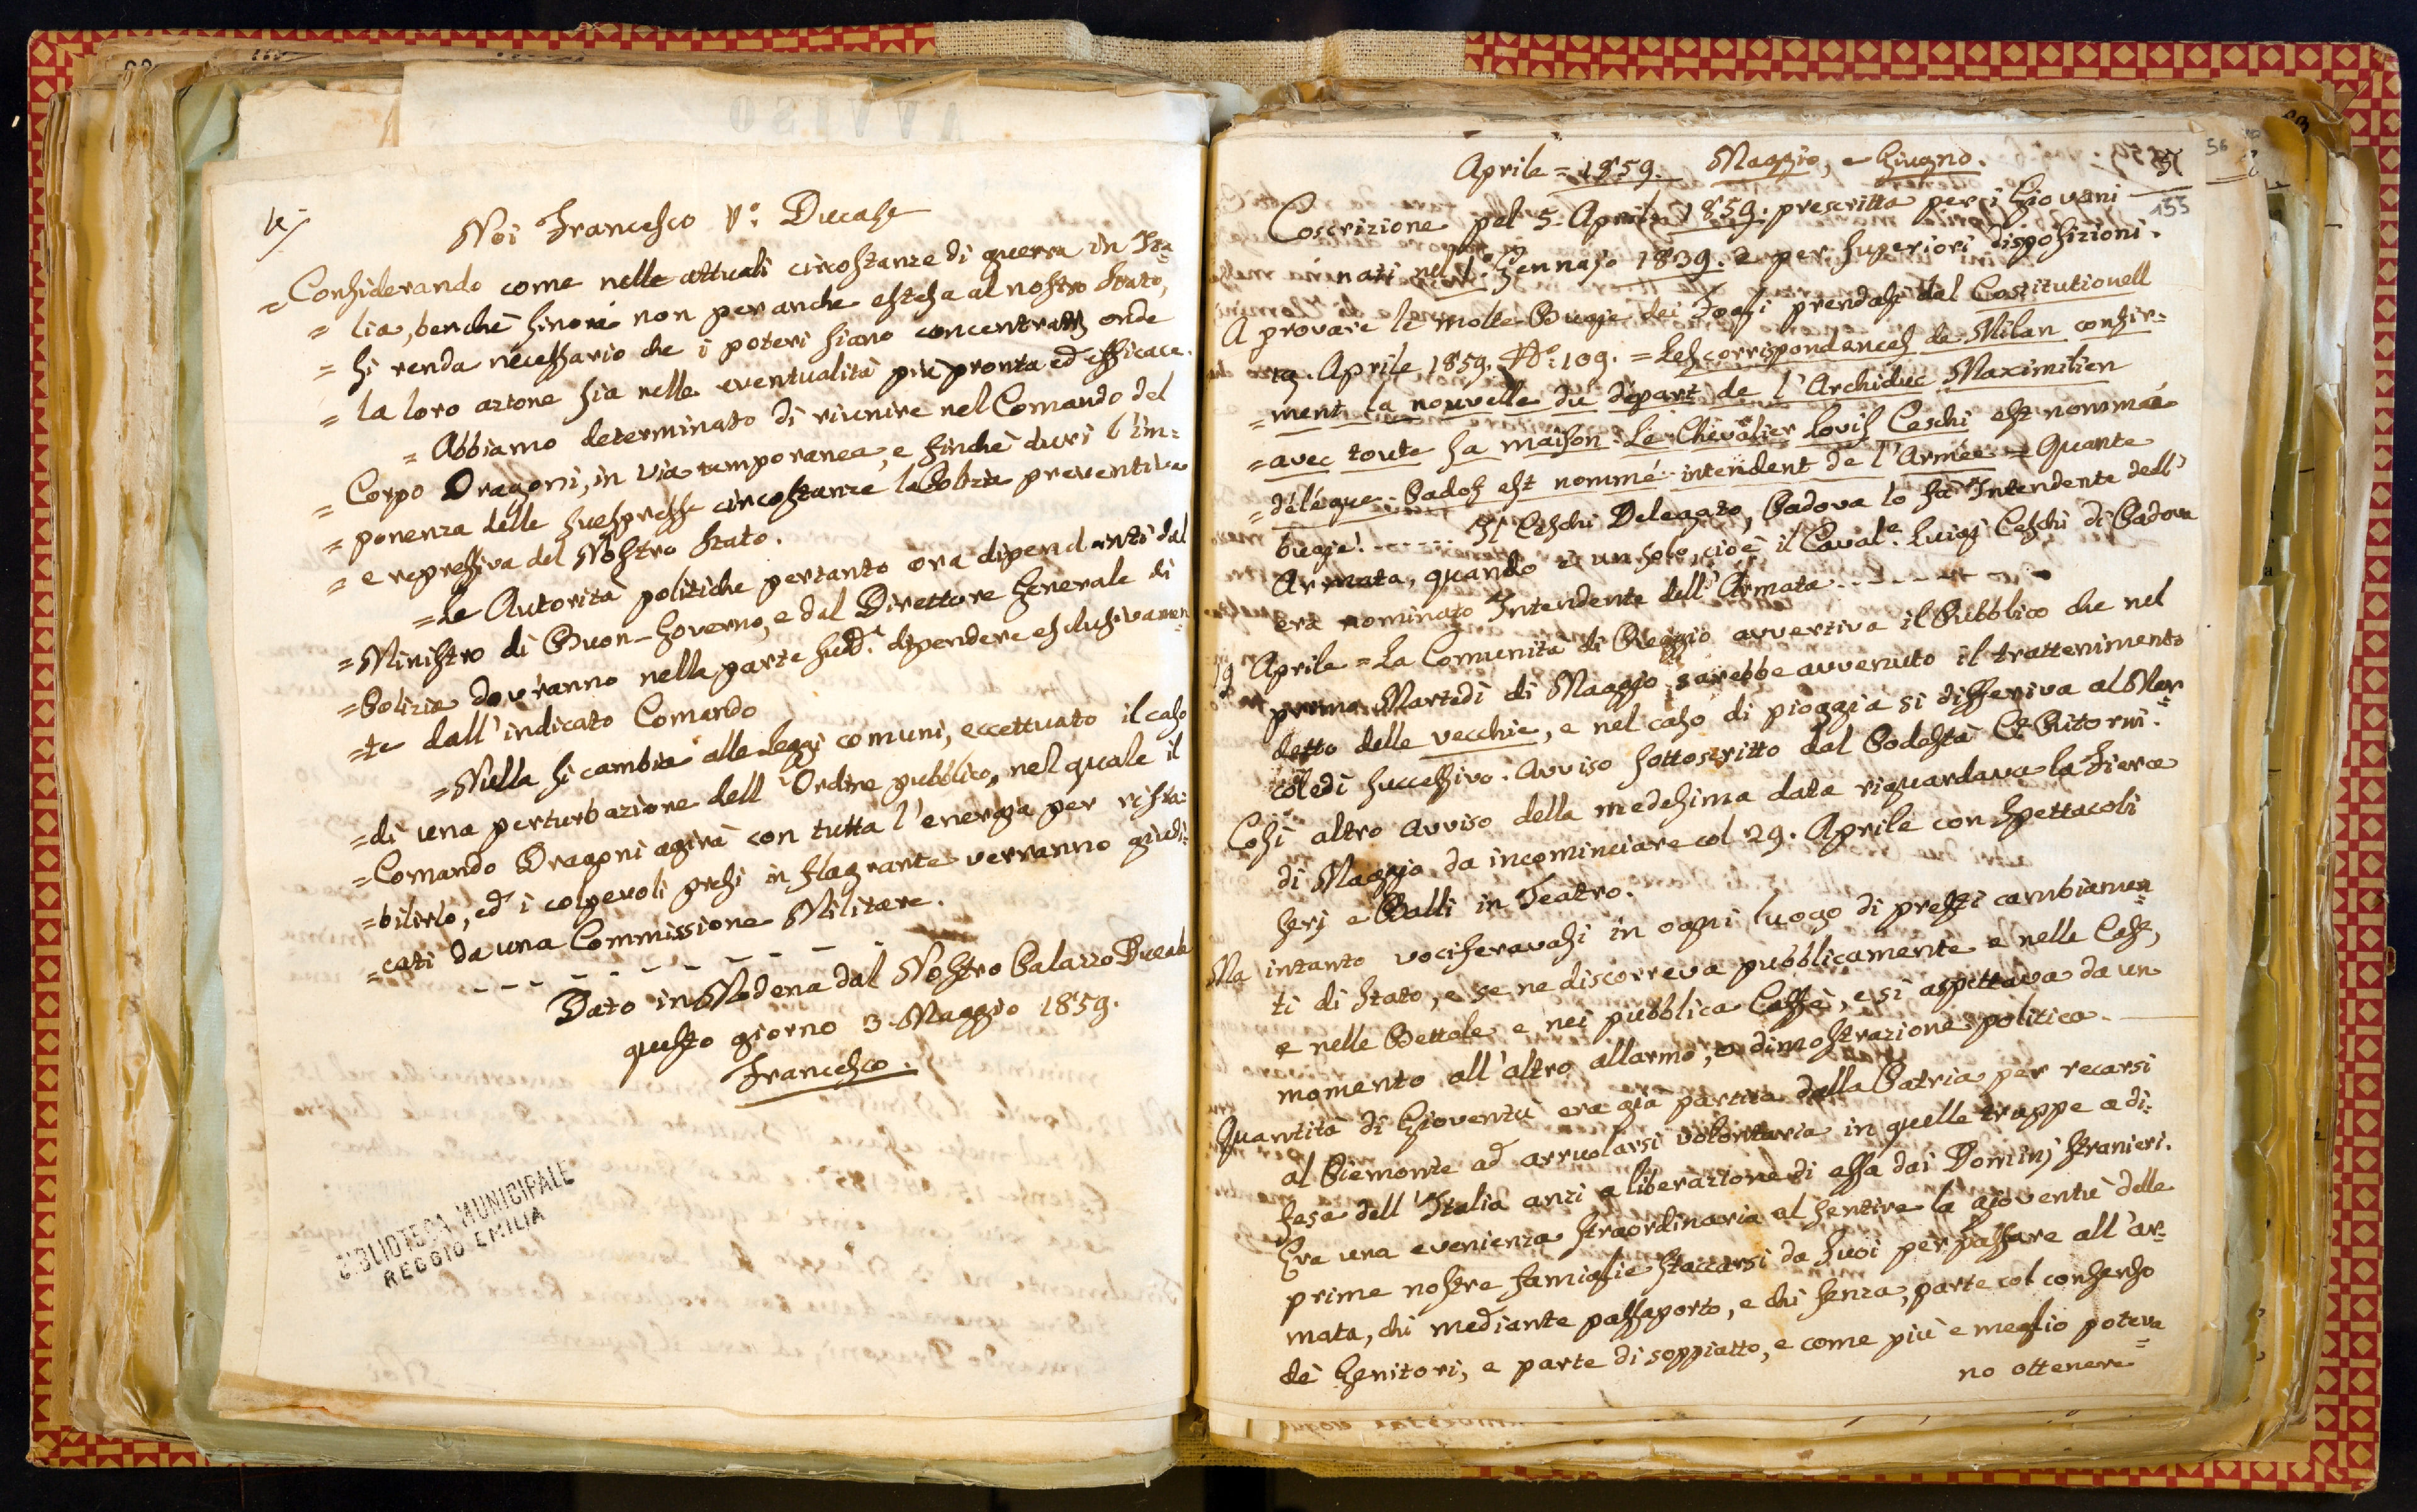 AVVISO
Noi Francesco V.º Duca &c
= Considerando come nelle attuali circostanze di guerra in Ita=
= lia, benchè sinora non per anche estesa al nostro Stato,
= si renda necessario che i poteri siano concentrati, onde
= la loro azione sia nelle eventualità più pronta ed efficace.
= Abbiamo determinato di riunire nel Comando del
= Corpo Dragoni, in via temporanea, e finchè duri l'im=
= ponenza delle suespresse circostanze la Polizia preventiva
= e repressiva del Nostro Stato.
= Le Autorità politiche pertanto ora dipendenti dal
= Ministro di Buon-Governo, e dal Direttore Generale di
= Polizia dovranno nella parte sudd.ª dipendere esclusivamen=
= te dall'indicato Comando
= Nulla si cambia alle Leggi comuni, eccettuato il caso
= di una perturbazione dell'Ordine pubblico, nel quale il
= Comando Dragoni agirà con tutta l'energia per rista=
= bilirlo, ed i colpevoli presi in flagrante verranno giudi=
= cati da una Commissione Militare.
Dato in Modena dal Nostro Palazzo Ducale
questo giorno 3. Maggio 1859.
Francesco.
BIBLIOTECA MUNICIPALE
REGGIO EMILIA
Aprile = 1859. Maggio, e Giugno.
56
155
Coscrizione pel 5. Aprile 1859. prescritta per i Giovani
nati nel 1.º Gennajo 1839. e per superiori disposizioni.
A provare le molte Bugie dei Fogli prendasi dal Costitutionell
19. Aprile 1859. Nº: 109. = Les corrispondences de Milan confir=
= ment la nouvelle du départ de l'Archiduc Maximilien
= avec toute sa maison. Le Chevalier Lovis Ceschi est nommée
= déléque. Pados est nommé intendent de l'Armée = Quante
bugie! ------ Il Ceschi Delegato, Padova lo fà Intendente dell'
Armata, quando è un solo, cioè il Caval.e Luigi Ceschi di Padova
era nominato Intendente dell'Armata --------
19 Aprile = La Comunità di Reggio avvertiva il Pubblico che nel
primo Martedì di Maggio sarebbe avvenuto il trattenimento
detto delle vecchie, e nel caso di pioggia si differiva al Mer=
coledì successivo. Avviso sottoscritto dal Podestà Ritorni.
Così altro avviso della medesima data riguardava la Fiera
di Maggio da incominciare col 29. Aprile con spettacoli
serj e Balli in Teatro.
Ma intanto vociferavasi in ogni luogo di pressi cambiamen=
ti di Stato, e se ne discorreva pubblicamente e nelle Case,
e nelle Bettole e nei pubblica Caffè, e si aspettava da un
momento all'altro allarme, o dimostrazione politica.
Quantità di Gioventù era già partita dalla Patria per recarsi
al Piemonte ad arruolarsi volontaria in quelle truppe a di=
fesa dell'Italia anzi a liberazione di essa dai Dominj stranieri.
Era una evenienza straordinaria al sentire la gioventù delle
prime nostre famiglie staccarsi da suoi per passare all'ar=
mata, chi mediante passaporto, e chi senza, parte col consenso
dei Genitori, e parte di soppiatto, e come più e meglio poteva=
no ottenere